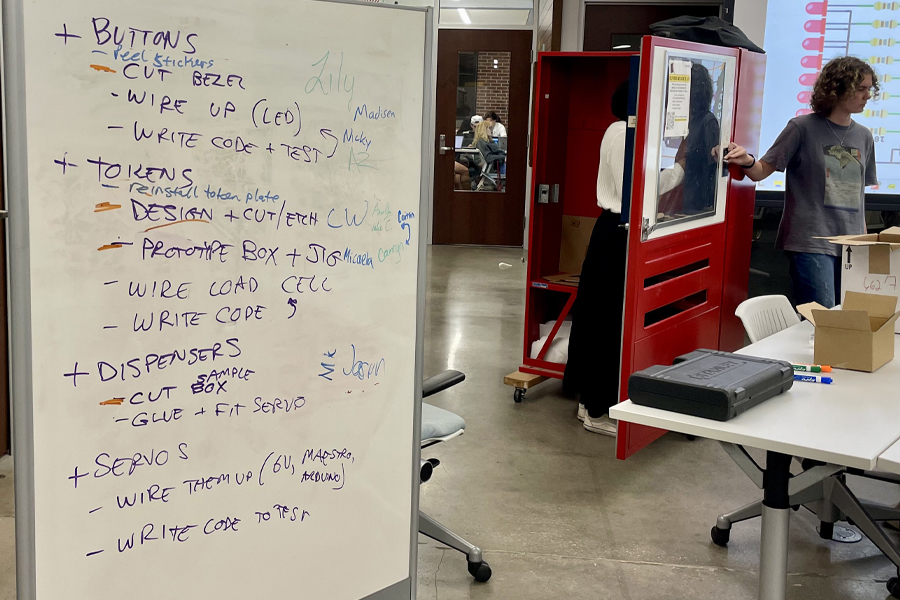 + BUTTONS
- Peel stickers
- CUT BEZEL
Lily
- WIRE UP (LED)
Madisen
- WRITE CODE + TEST
Nicky
+ TOKENS
- reinstall token plate
- DESIGN + CUT/ETCH CW
- PROTOTYPE BOX + JIG Micaela
- WIRE LOAD CELL
- WRITE CODE
+ DISPENSERS
Nik Jason
- CUT SAMPLE BOX
- GLUE + FIT SERVO
+ SERVOS
- WIRE THEM UP (6V, MAESTRO, ARDUINO)
- WRITE CODE TO TEST
UP